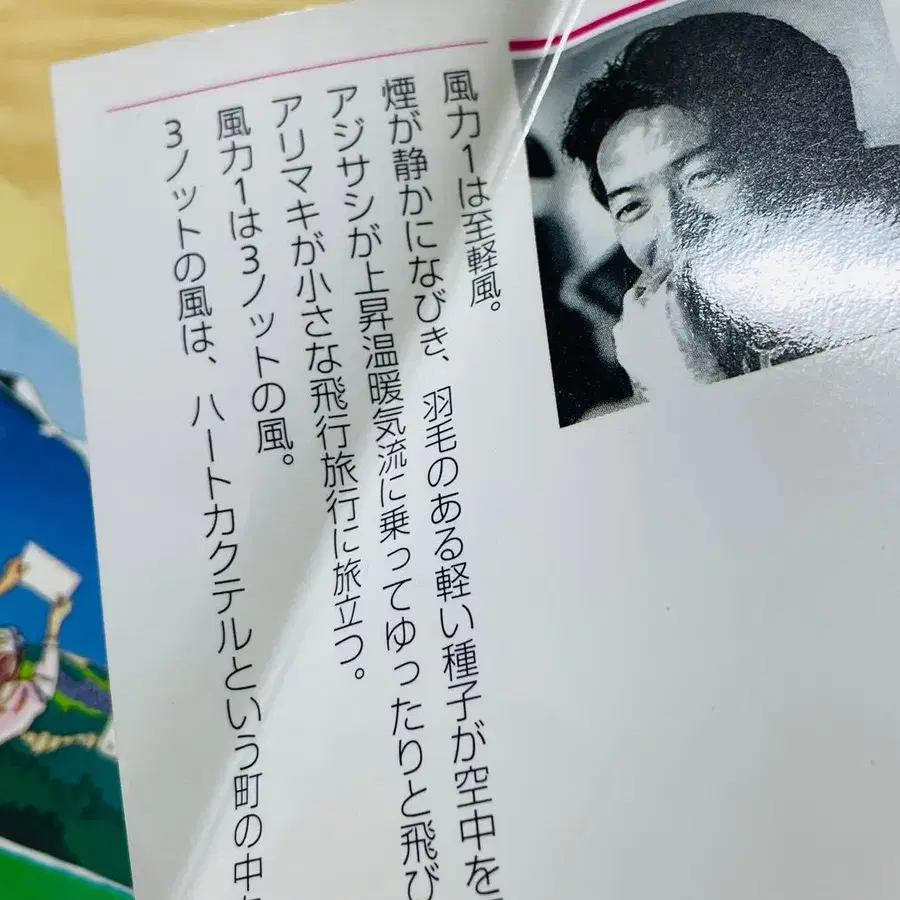 風力1は至軽風。
煙が静かになびき、羽毛のある軽い種子が空中を
アジサシが上昇温暖気流に乗ってゆったりと飛び
アリマキが小さな飛行旅行に旅立つ。
風力1は3ノットの風。
3ノットの風は、ハートカクテルという町の中